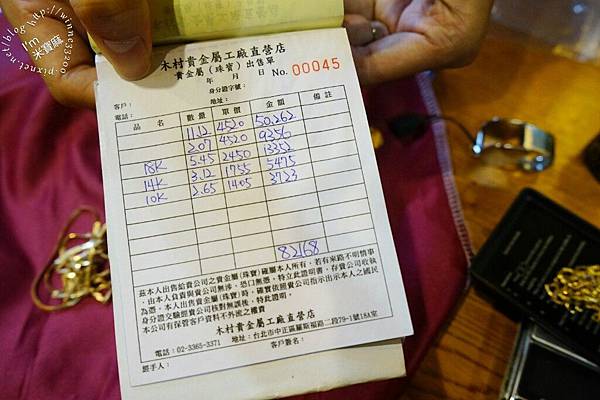 http://winnc33200
I'm
米寶麻
pixnet.net/blog
木村貴金屬工廠直營店
貴金屬(珠寶)出售單
年 月 日 No. 00045
身分證字號:
客戶:
電話: 地址:
品名 數量 單價 金額 備註
11.12 4520 50,262
2.07 4520 9356
18K 5.45 2450 13352
14K 3.12 1755 5475
10K 2.65 1405 3723
82168
茲本人出售給貴公司之貴金屬(珠寶)確屬本人所有,若有來路不明情事
,由本人負責與貴公司無涉,恐口無憑,特立此證明書,存貴公司收執
為憑。本人出售貴金屬(珠寶)時,確實依照貴公司指示出示本人之國民
身分證交驗照貴公司核對無誤後,特此證明。
本公司有保管客戶資料不外流之權責
木村貴金屬工廠直營店
電話:02-3365-3371 地址:台北市中正區羅斯福路二段79-1號1BA室
經手人: 客戶簽名: